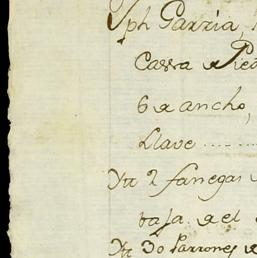 Jph Garzia,
Cassa de Pied
6 de ancho,
Llave ........
Ytt 2 fanegas
baja del
Ytt 30 Parrones de